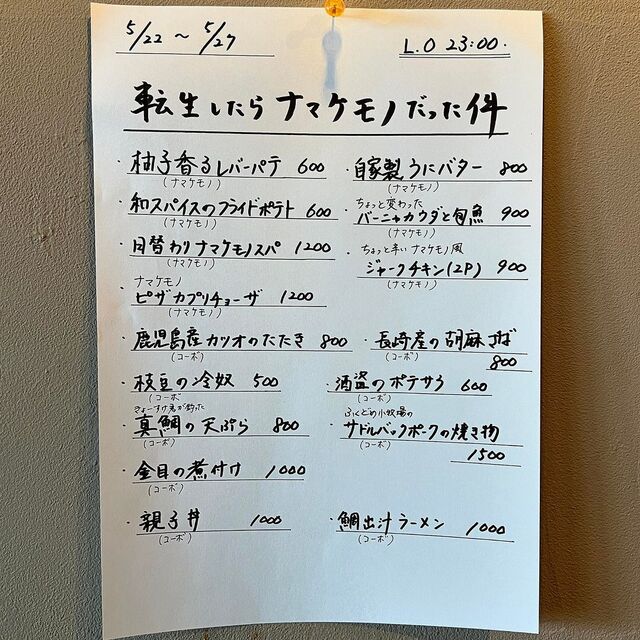 5/22 〜 5/27
L.O 23:00.
転生したらナマケモノだった件
・柚子香るレバーパテ 600
(ナマケモノ)
・自家製うにバター 800
(ナマケモノ)
・和スパイスのフライドポテト 600
(ナマケモノ)
ちょっと変わった
・バーニャカウダと旬魚 900
(ナマケモノ)
・日替わりナマケモノスパ 1200
(ナマケモノ)
・ちょっと辛いナマケモノ風
ジャークチキン(2P) 900
(ナマケモノ)
ナマケモノ
・ピザカプリチョーザ 1200
(ナマケモノ)
・鹿児島産カツオのたたき 800
(コーボ)
・長崎産の胡麻さば
800
(コーボ)
・枝豆の冷奴 500
(コーボ)
・酒盗のポテサラ 600
(コーボ)
きょーすけ君が釣った
・真鯛の天ぷら 800
(コーボ)
ふくどめ小牧場の
・サドルバックポークの焼き物
1500
(コーボ)
・金目の煮付け 1000
(コーボ)
・親子丼 1000
(コーボ)
・鯛出汁ラーメン 1000
(コーボ)